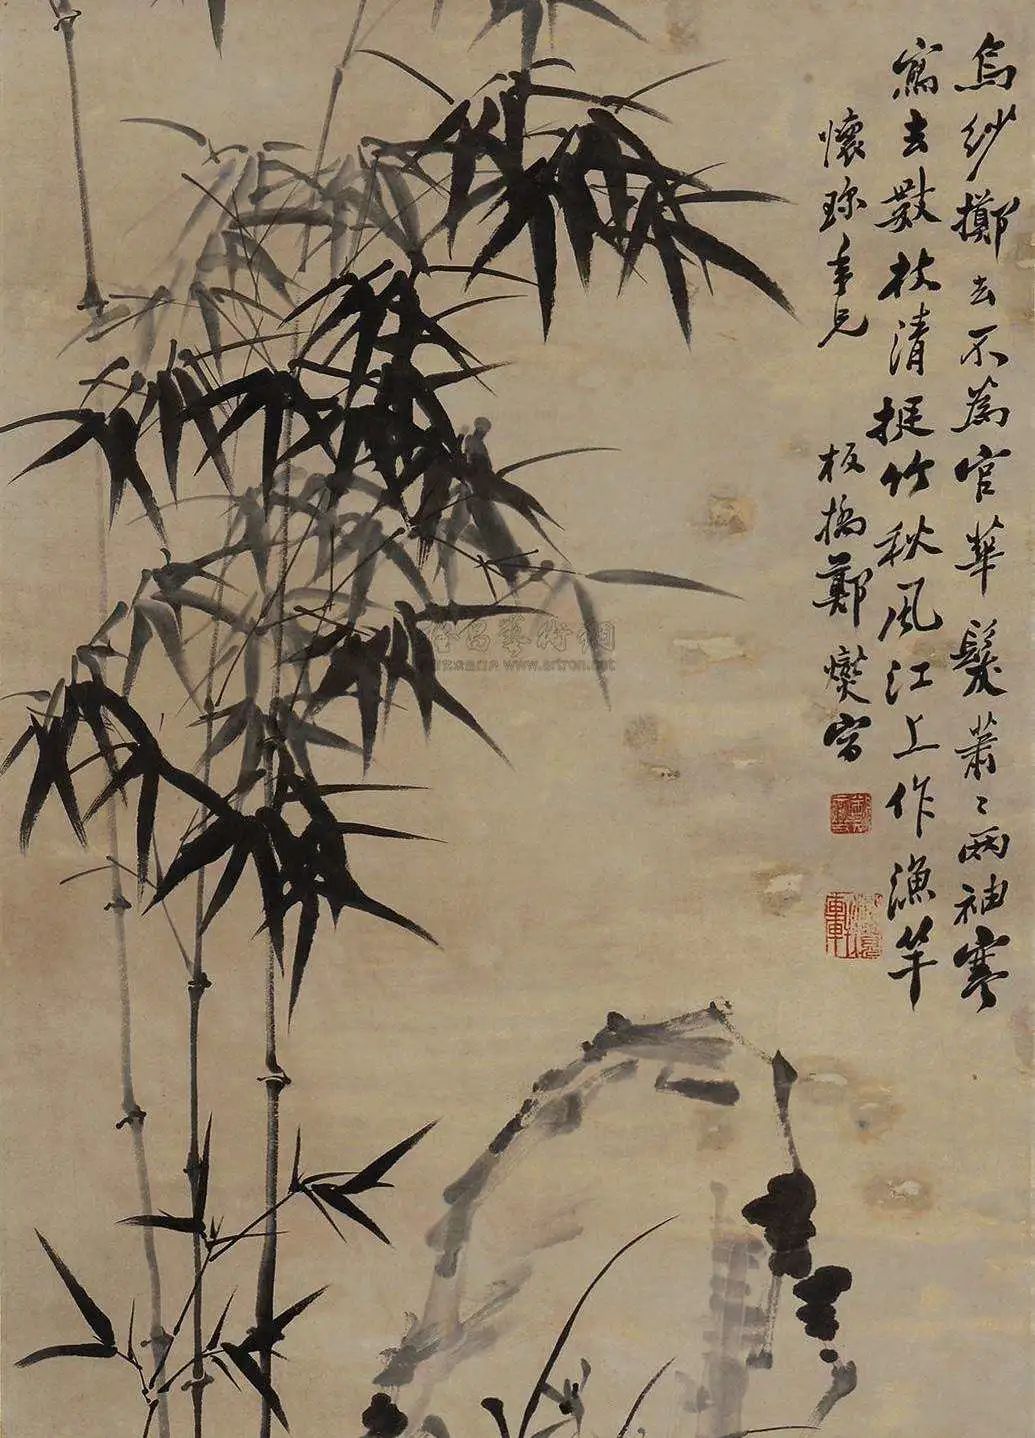 烏紗擲去不為官華髮蕭〻兩袖寒
寫去數枝清挺竹秋風江上作漁竿
懷珎年兄 板橋鄭燮寫
雅昌藝術網
www.artron.net